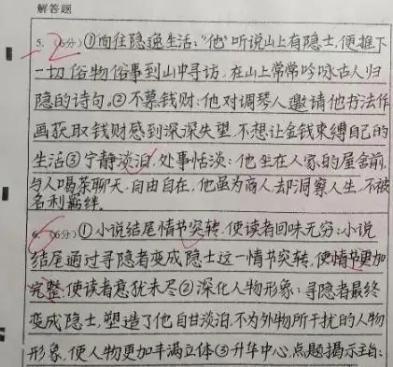 解答题
5. (6分) ①向往隐逸生活:"他"听说山上有隐士,便推下
一切俗物俗事到山中寻访,在山上常常吟咏古人归
隐的诗句。②不慕钱财:他对调琴人邀请他书法作
画获取钱财感到深深失望,不想让金钱束缚自己的
生活③宁静淡泊,处事恬淡:他坐在人家的屋舍前,
与人喝茶聊天,自由自在,他虽为商人却洞察人生,不被
名利羁绊。
6. (6分) ①小说结尾情节突转,使读者回味无穷:小说
结尾通过寻隐者变成隐士这一情节突转,使情节更加
完整,使读者意犹未尽②深化人物形象:寻隐者最终
变成隐士,塑造了他自甘淡泊,不为外物所干扰的人物
形象,使人物更加丰满立体③升华中心,点题揭示主旨: